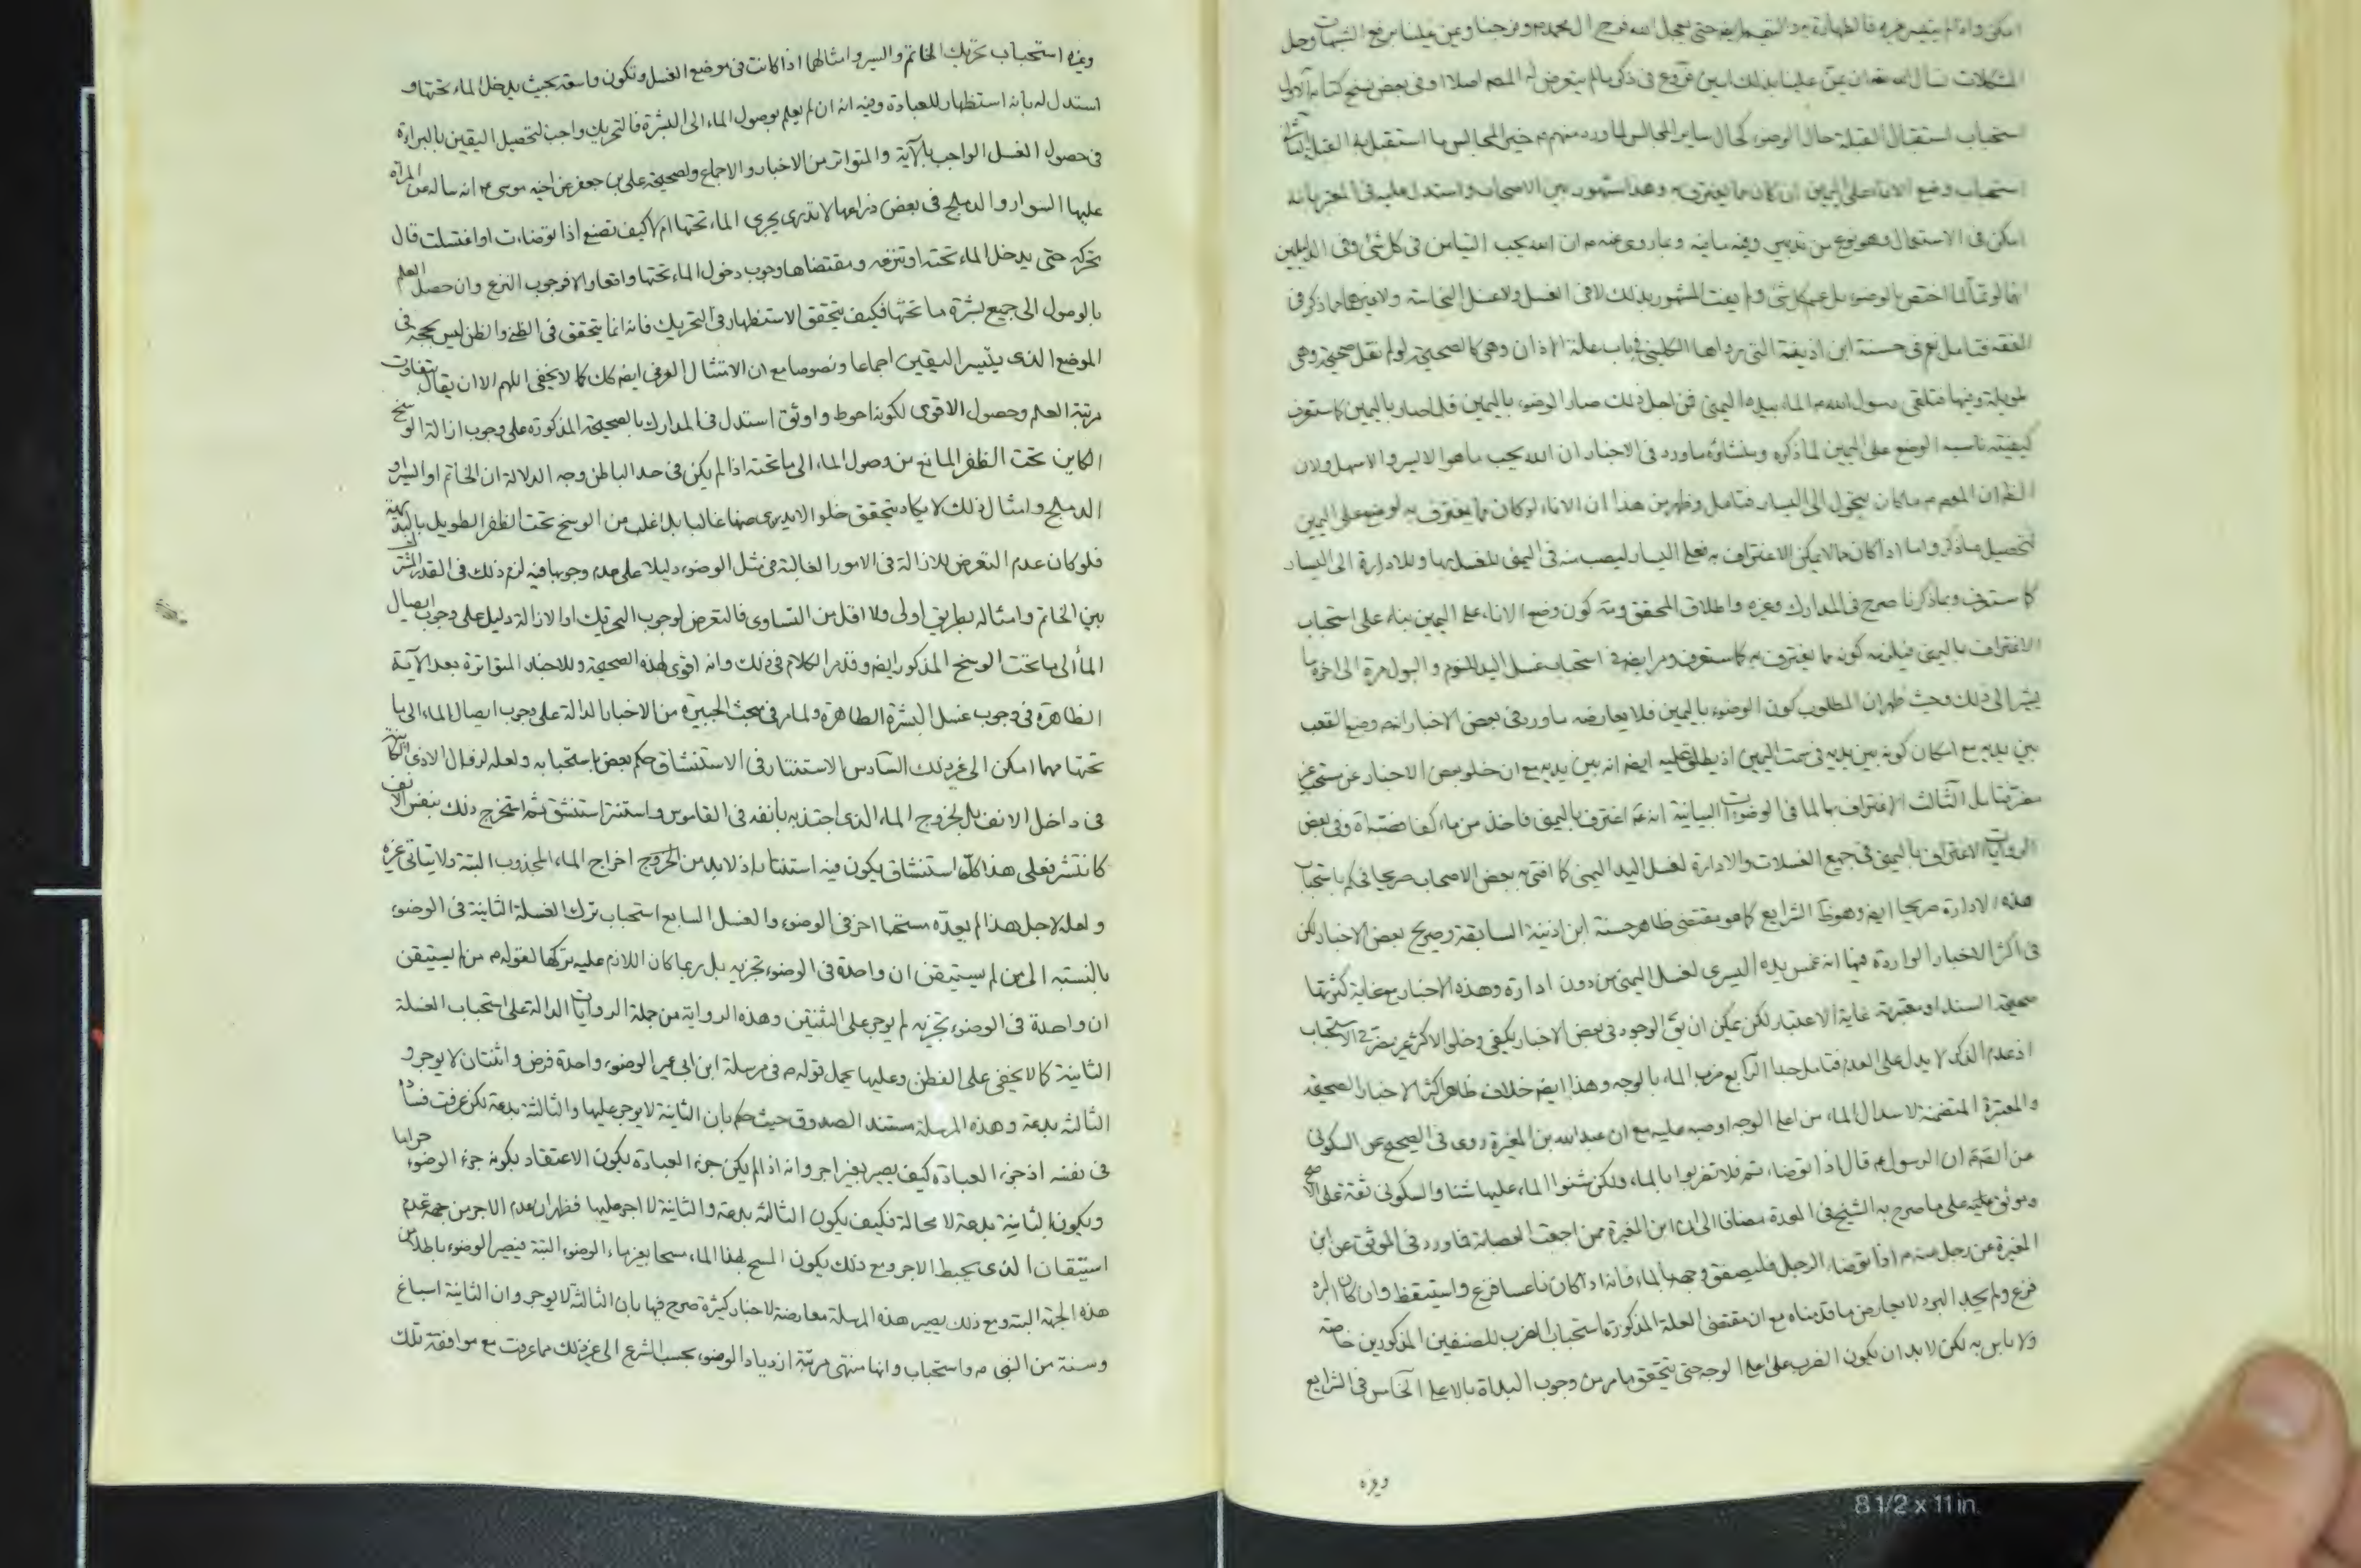 امكن واذا لم يتيسر غيره فالطهارة مع التيمم ايضا حتى يعجل الله فرج ال محمد م وفرجنا وعين علينا برفع الشبهات وحل
المشكلات نسال الله تعه ان يمن علينا بذلك امين فروع في ذكر ما لم يتعرض له المصه اصلا او في بعض نسخ كتابه الاول
استحباب استقبال القبلة حال الوضوء كحال ساير المجالس لما ورد منهم م خير المجالس ما استقبل به القبلة الثاني
استحباب وضع الاناء على اليمين ان كان مما يغترف به وهذا مشهور بين الاصحاب واستدل عليه في المعتبر بانه
امكن في الاستعمال وهو نوع من تدبير وفيه ما فيه وبما روى عنه م ان الله يحب التيامن في كل شئ وفي الدليلين
انهما لو تما لما اختص بالوضوء بل عم كل شئ ولم يفت المشهور بذلك لا في الغسل ولا غسل النجاسة ولا غيرهما مما ذكر في
الفقه فتامل نعم في حسنة ابن اذينة التي رواها الكليني في باب علة الاذان وهي كالصحيحة لو لم نقل صحيحة وهي
طويلة وفيها فتلقى رسول الله م الماء بيده اليمنى فمن اجل ذلك صار الوضوء باليمين فلما صار باليمين كما ستعرف
كيفيته ناسبه الوضع على اليمين لما ذكره ومنشاؤه ما ورد في الاخبار ان الله يحب ما هو الايسر والاسهل ولان
الظ ان المعصوم م ما كان يتحول الى اليسار فتامل وظهر من هذا ان الاناء لو كان مما يغترف به لوضع على اليمين
لتحصيل ما ذكر واما اذا كان مما لا يمكن الاغتراف به فعلى اليسار ليصب منه في اليمنى للغسل بها وللادارة الى اليسار
كما ستعرف وبما ذكرنا صرح في المدارك وغيره واطلاق المحقق وته كون وضع الاناء على اليمين بناء على استحباب
الاغتراف باليمنى فيلزمه كونه مما يغترف به كما ستعرف ومر ايضا في استحباب غسل اليد للنوم والبول مرة الى اخره ما
يشير الى ذلك وحيث ظهر ان المطلوب كون الوضوء باليمين فلا يعارضه ما ورد في بعض الاخبار انه م وضع القعب
بين يديه مع امكان كونه بين يديه في سمت اليمين اذ يطلق عليه ايضا انه بين يديه مع ان خلو بعض الاخبار عن مستحب غير
مضر فتامل الثالث الاغتراف بها لما في الوضوءات البيانية انه م اغترف باليمنى فاخذ من ماء كفا فصبه اه وفي بعض
الروايات الاغتراف باليمنى في جميع الغسلات والادارة لغسل اليد اليمنى كما افتى به بعض الاصحاب صريحا فحكم باستحباب
هذه الادارة صريحا ايضا وهو ظ الشرايع كما هو مقتضى ظاهر حسنة ابن اذينة السابقة وصريح بعض الاخبار لكن
في اكثر الاخبار الواردة فيها انه غمس يده اليسرى لغسل اليمنى من دون ادارة وهذه الاخبار مع غاية كثرتها
صحيحة السند او معتبرة غاية الاعتبار لكن يمكن ان يق الوجود في بعض الاخبار يكفي وخلو الاكثر غير مضر في الاستحباب
اذ عدم الذكر لا يدل على العدم فتامل جدا الرابع ضرب الماء بالوجه وهذا ايضا خلاف ظاهر اكثر الاخبار الصحيحة
والمعتبرة المتضمنة لاسدال الماء من اعلى الوجه او صبه عليه مع ان عبد الله بن المغيرة روى في الصحيح عن السكوني
عن الصه م ان الرسول م قال اذا توضاء تم فلا تضربوا بالماء ولكن شنوا الماء عليها شنا والسكوني ثقة على الاصح
وموثق عليه على ما صرح به الشيخ في العدة مضافا الى ان ابن المغيرة ممن اجمعت العصابة فما ورد في الموثق عن ابن
المغيرة عن رجل منه م اذا توضاء الرجل فليصفق وجهه بالماء فانه اذا كان ناعسا فزع واستيقظ وان كان البرد
فزع ولم يجد البرد لا يعارض ما قدمناه مع ان مقتضى العلة المذكورة استحباب الضرب للصنفين المذكورين خاصة
ولا باس به لكن لا بد ان يكون الضرب على اعلى الوجه حتى يتحقق ما مر من وجوب البداة بالاعلى الخامس في الشرايع
وغيره
وغيره استحباب تحريك الخاتم والسير وامثالها اذا كانت في موضع الغسل وتكون واسعة بحيث يدخل الماء تحتها و
استدل له بانه استظهار للعبادة وفيه انه ان لم يعلم بوصول الماء الى البشرة فالتحريك واجب لتحصيل اليقين بالبراءة
في حصول الغسل الواجب بالاية والمتواتر من الاخبار والاجماع ولصحيحة علي بن جعفر عن اخيه موسى م انه ساله عن المراة
عليها السوار والدملج في بعض ذراعها لا تدري يجري الماء تحتها ام لا كيف تصنع اذا توضاءت او اغتسلت قال
تحركه حتى يدخل الماء تحته او تنزعه ومقتضاها وجوب دخول الماء تحتها واقعا والا فوجوب النزع وان حصل العلم
بالوصول الى جميع بشرة ما تحتها فكيف يتحقق الاستظهار في التحريك فانه انما يتحقق في الظن والظن ليس بحجة في
الموضع الذي يتيسر اليقين اجماعا ونصوصا مع ان الامتثال العرفي ايضا كك كما لا يخفى اللهم الا ان يقال بتفاوت
مرتبة العلم وحصول الاقوى لكونه احوط واوثق استدل في المدارك بالصحيحة المذكورة على وجوب ازالة الوسخ
الكاين تحت الظفر المانع من وصول الماء الى ما تحته اذا لم يكن في حد الباطن وجه الدلالة ان الخاتم او السير او
الدملج وامثال ذلك لا يكاد يتحقق خلو الايدي عنها غالبا بل اغلب من الوسخ تحت الظفر الطويل بالبديهة
فلو كان عدم التعرض للازالة في الامور الغالبة في مثل الوضوء دليلا على عدم وجوبها فيه لزم ذلك في القدر المشترك
بين الخاتم وامثاله بطريق اولى ولا اقل من التساوي فالتعرض لوجوب التحريك او الازالة دليل على وجوب ايصال
الماء الى ما تحت الوسخ المذكور ايضا وقد مر الكلام في ذلك وانه اقوى لهذه الصحيحة وللاخبار المتواترة بعد الآية
الظاهرة في وجوب غسل البشرة الظاهرة ولما مر في مبحث الجبيرة من الاخبار الدالة على وجوب ايصال الماء الى ما
تحتها مهما امكن الى غير ذلك السادس الاستنثار في الاستنشاق حكم بعض باستحبابه ولعله لزوال الاذى الكاين
في داخل الانف بل لخروج الماء الذي اجتذبه بأنفه في القاموس واستنثر استنشق ثم استخرج ذلك بنفس الانف
كانتثر فعلى هذا كل استنشاق يكون فيه استنثار اذ لا بد من الخروج اخراج الماء المجذوب البتة ولا يتاتى غيره
ولعله لاجل هذا لم يعده مستحبا اخر في الوضوء والغسل السابع استحباب ترك الغسلة الثانية في الوضوء
بالنسبة الى من لم يستيقن ان واحدة في الوضوء تجزيه بل ربما كان اللازم عليه تركها لقوله م من لم يستيقن
ان واحدة في الوضوء تجزيه لم يوجر على الثنتين وهذه الرواية من جملة الروايات الدالة على استحباب الغسلة
الثانية كما لا يخفى على الفطن وعليها يحمل قوله م في مرسلة ابن ابي عمير الوضوء واحدة فرض واثنتان لا يوجر و
الثالثة بدعة وهذه المرسلة مستند الصدوق حيث حكم بان الثانية لا يوجر عليها والثالثة بدعة لكن عرفت فسادا
في نفسه اذ جزء العبادة كيف يصير بغير اجر وانه اذا لم يكن جزء العبادة يكون الاعتقاد بكونه جزء الوضوء حراما
ويكون الثانية بدعة لا محالة فكيف يكون الثالثة بدعة والثانية لا اجر عليها فظهر ان عدم الاجر من جهة عدم
استيقان الذي يحبط الاجر ومع ذلك يكون المسح لهذا الماء مسحا بغير ماء الوضوء البتة فيصير الوضوء باطلا من
هذه الجهة البتة ومع ذلك يصير هذه المرسلة معارضة لاخبار كثيرة صرح فيها بان الثالثة لا يوجر وان الثانية اسباغ
وسنة من النبي م واستحباب وانها منتهى مرتبة ازدياد الوضوء بحسب الشرع الى غير ذلك مما عرفت مع موافقة تلك
8 1/2 x 11 in.